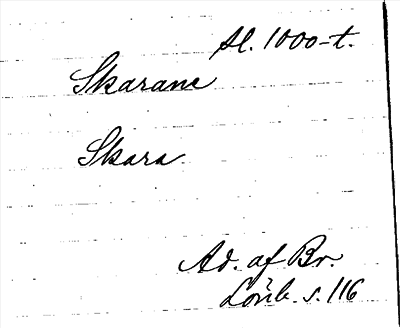 Sl. 1000-t.
Skarane
Skara
Ad. af Br.
s. 116